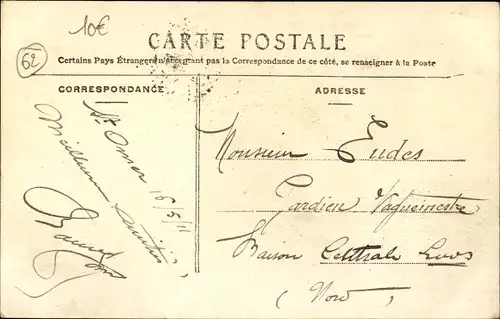 10€
62
CARTE POSTALE
Certains Pays Étrangers n'acceptant pas la Correspondance de ce côté, se renseigner à la Poste
CORRESPONDANCE
St Omer 16/5/11
Meilleures amitiés
ADRESSE
Monsieur Eudes
Gardien Vaguemestre
Maison Centrale Loos
(Nord)